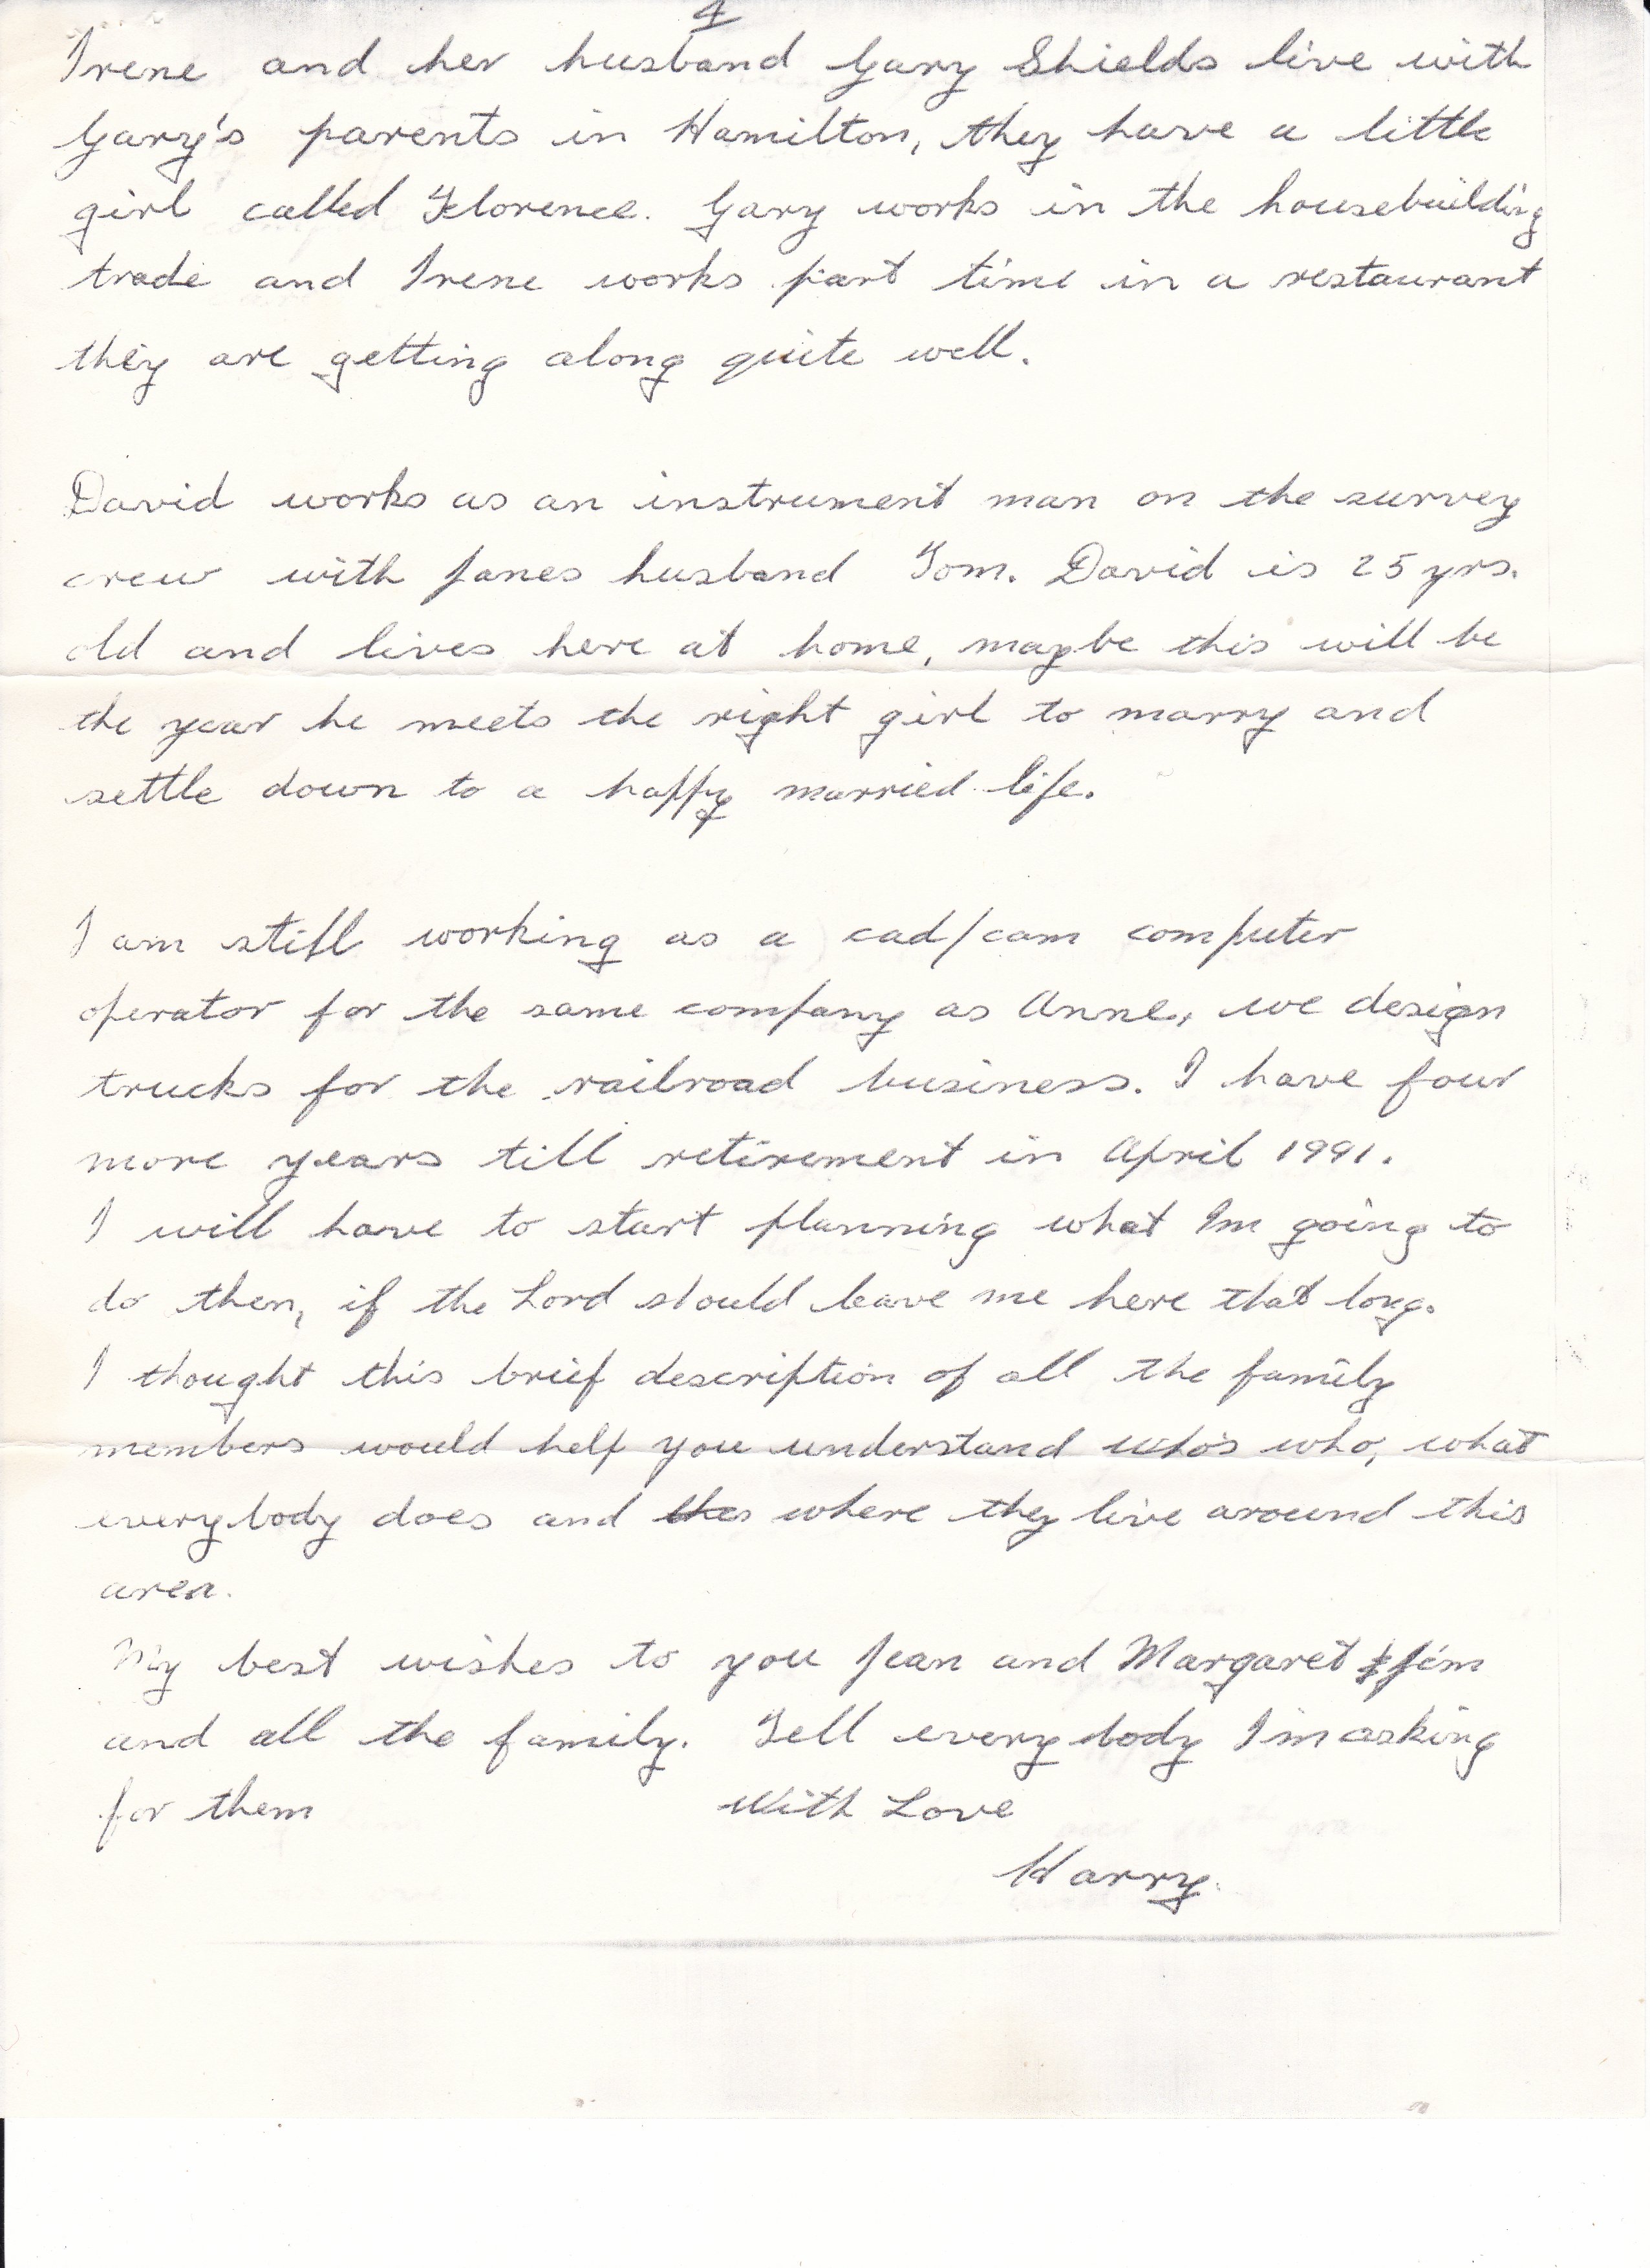 4
Irene and her husband Gary Shields live with
Gary's parents in Hamilton, they have a little
girl called Florence. Gary works in the housebuilding
trade and Irene works part time in a restaurant
they are getting along quite well.
David works as an instrument man on the survey
crew with Janes husband Tom. David is 25 yrs.
old and lives here at home, maybe this will be
the year he meets the right girl to marry and
settle down to a happy married life.
I am still working as a cad/cam computer
operator for the same company as Anne, we design
trucks for the railroad business. I have four
more years till retirement in April 1991.
I will have to start planning what Im going to
do then, if the Lord should leave me here that long.
I thought this brief description of all the family
members would help you understand who's who, what
everybody does and where they live around this
area.
My best wishes to you Jean and Margaret & Jim
and all the family. Tell everybody I'm asking
for them With Love
Harry.